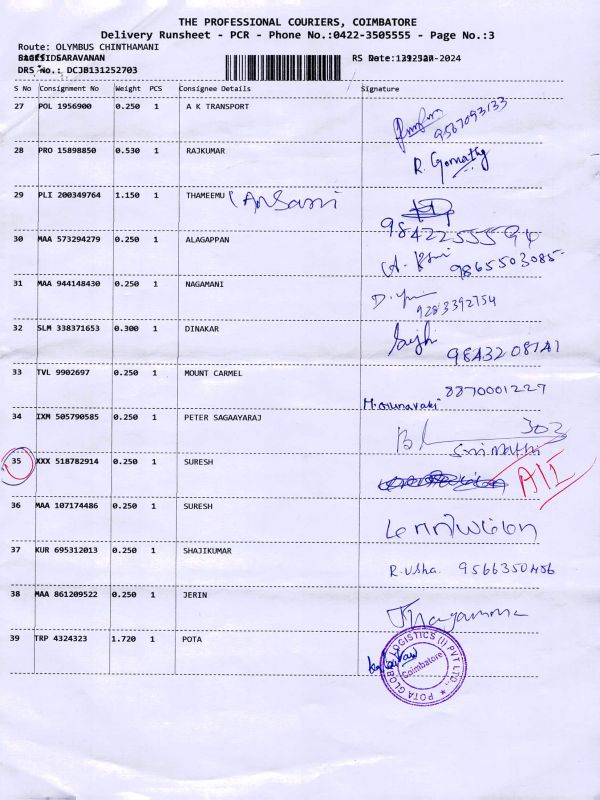 THE PROFESSIONAL COURIERS, COIMBATORE
Delivery Runsheet - PCR - Phone No.:0422-3505555 - Page No.:3
Route: OLYMBUS CHINTHAMANI
SARAVANAN
DRS No.: DCJB131252703
RS -2024
S No Consignment No Weight PCS Consignee Details Signature
27 POL 1956900 0.250 1 A K TRANSPORT
9567093133
28 PRO 15898850 0.530 1 RAJKUMAR
R. Gomathy
29 PLI 200349764 1.150 1 THAMEEMU (Ansari
30 MAA 573294279 0.250 1 ALAGAPPAN
9865503085
31 MAA 944148430 0.250 1 NAGAMANI
9283392754
32 SLM 338371653 0.300 1 DINAKAR
33 TVL 9902697 0.250 1 MOUNT CARMEL
8870001227
34 IXM 505790585 0.250 1 PETER SAGAAYARAJ
302
35 XXX 518782914 0.250 1 SURESH
36 MAA 107174486 0.250 1 SURESH
37 KUR 695312013 0.250 1 SHAJIKUMAR
R. Usha. 9566350456
38 MAA 861209522 0.250 1 JERIN
39 TRP 4324323 1.720 1 POTA
POTA GLOBAL LOGISTICS (I) PVT LTD.,
Coimbatore